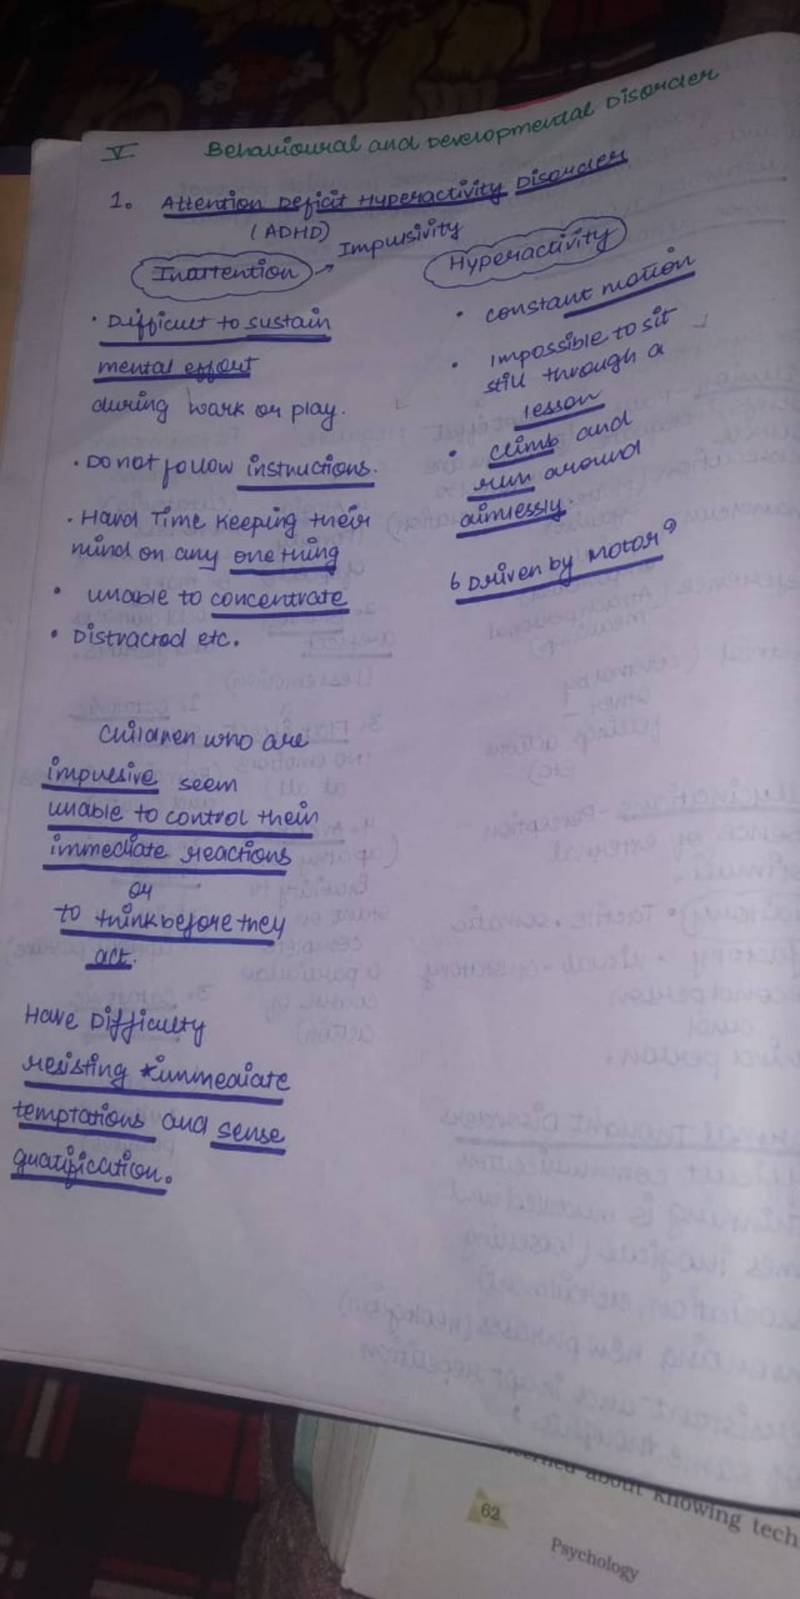 V Behavioural and Developmental Disorder
1. Attention Deficit Hyperactivity Disorder
(ADHD)
Inattention → Impulsivity
• Difficult to sustain
mental effort
during work or play.
• Do not follow instructions.
• Hard Time keeping their
mind on any one thing
• unable to concentrate
• Distracted etc.
Children who are
impulsive seem
unable to control their
immediate reactions
or
to think before they
act.
Have Difficulty
resisting immediate
temptations and sense
gratification.
Hyperactivity
• constant motion
• Impossible to sit
still through a
lesson
• climb and
run around
aimlessly.
'Driven by Motor'
about knowing tech
62
Psychology